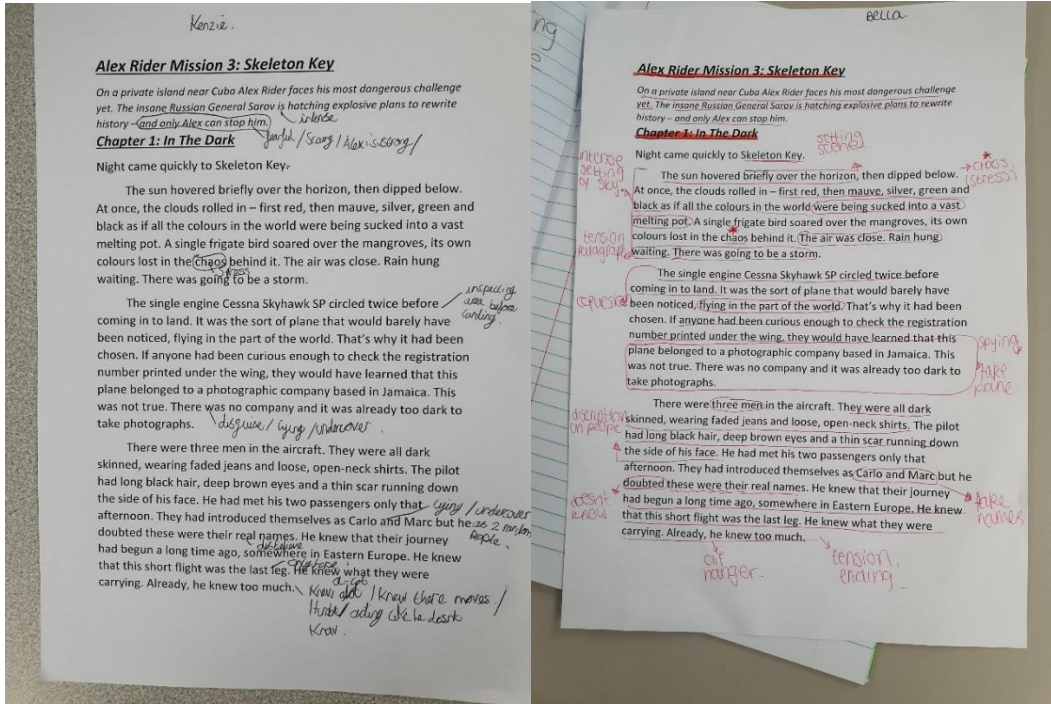 Kenzie.
Alex Rider Mission 3: Skeleton Key
On a private island near Cuba Alex Rider faces his most dangerous challenge
yet. The insane Russian General Sarov is hatching explosive plans to rewrite
history – and only Alex can stop him.
intense
fearful / scary / Alex is strong /
Chapter 1: In The Dark
Night came quickly to Skeleton Key.
The sun hovered briefly over the horizon, then dipped below.
At once, the clouds rolled in – first red, then mauve, silver, green and
black as if all the colours in the world were being sucked into a vast
melting pot. A single frigate bird soared over the mangroves, its own
colours lost in the chaos behind it. The air was close. Rain hung
stress
waiting. There was going to be a storm.
The single engine Cessna Skyhawk SP circled twice before
inspecting
area before
landing.
coming in to land. It was the sort of plane that would barely have
been noticed, flying in the part of the world. That's why it had been
chosen. If anyone had been curious enough to check the registration
number printed under the wing, they would have learned that this
plane belonged to a photographic company based in Jamaica. This
was not true. There was no company and it was already too dark to
take photographs.
disguise / lying / undercover.
There were three men in the aircraft. They were all dark
skinned, wearing faded jeans and loose, open-neck shirts. The pilot
had long black hair, deep brown eyes and a thin scar running down
the side of his face. He had met his two passengers only that
lying / undercover
as 2 random
people.
afternoon. They had introduced themselves as Carlo and Marc but he
doubted these were their real names. He knew that their journey
had begun a long time ago, somewhere in Eastern Europe. He knew
that this short flight was the last leg. He knew what they were
carrying. Already, he knew too much.
a-lot
/ Knew there moves /
acting like he
Know.
ng
Bella.
Alex Rider Mission 3: Skeleton Key
On a private island near Cuba Alex Rider faces his most dangerous challenge
yet. The insane Russian General Sarov is hatching explosive plans to rewrite
history – and only Alex can stop him.
Chapter 1: In The Dark
setting
scene
Night came quickly to Skeleton Key.
intense
setting
of sky
The sun hovered briefly over the horizon, then dipped below.
chaos
(stress)
At once, the clouds rolled in – first red, then mauve, silver, green and
black as if all the colours in the world were being sucked into a vast
melting pot. A single frigate bird soared over the mangroves, its own
colours lost in the chaos behind it. The air was close. Rain hung
tension
paragraph
waiting. There was going to be a storm.
The single engine Cessna Skyhawk SP circled twice before
coming in to land. It was the sort of plane that would barely have
been noticed, flying in the part of the world. That's why it had been
chosen. If anyone had been curious enough to check the registration
number printed under the wing, they would have learned that this
plane belonged to a photographic company based in Jamaica. This
was not true. There was no company and it was already too dark to
take photographs.
spying
fake
plane
There were three men in the aircraft. They were all dark
discription
on people
skinned, wearing faded jeans and loose, open-neck shirts. The pilot
had long black hair, deep brown eyes and a thin scar running down
the side of his face. He had met his two passengers only that
afternoon. They had introduced themselves as Carlo and Marc but he
doubted these were their real names. He knew that their journey
doesnt
know
fake
names
had begun a long time ago, somewhere in Eastern Europe. He knew
that this short flight was the last leg. He knew what they were
carrying. Already, he knew too much.
clif
hanger.
tension
ending